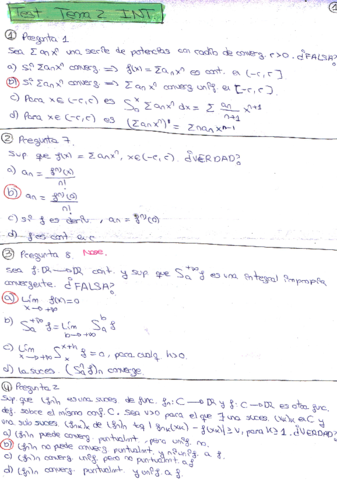 Test Tema 2 INT.
① Pregunta 1
Sea Σanxⁿ una serie de potencias con radio de converg. r>0. ¿FALSA?
a) Si Σanxⁿ converg. => f(x) = Σanxⁿ es cont. en (-r, r]
b) Si Σanxⁿ converg. => Σanxⁿ converg unif. en [-r, r].
c) Para x∈(-r,r) es ∫₀ˣ Σanxⁿ dx = Σ an/n+1 xⁿ⁺¹
d) Para x∈(-r,r) es (Σanxⁿ)' = Σnanxⁿ⁻¹
② Pregunta 7.
Sup que f(x) = Σanxⁿ, x∈(-r,r). ¿VERDAD?
a) an = f⁽ⁿ⁾(x)/n!
b) an = f⁽ⁿ⁾(0)/n!
c) si f es deriv., an = f⁽ⁿ⁾(0)
d) f es cont. en r
③ Pregunta 8.
Sea f: R → R cont. y sup que ∫ₐ⁺∞ f es una integral impropia
convergente. ¿FALSA?
a) Lím x→+∞ f(x) = 0
b) ∫ₐ⁺∞ f = Lím b→+∞ ∫ₐᵇ f
c) Lím x→+∞ ∫ₓˣ⁺ʰ f = 0, para cualq. h>0.
d) la suces. (∫ₐⁿ f)n converge.
④ Pregunta 2
Sup que (fn)n es una suces de func. fn: C → R y f: C → R es otra func.
def. sobre el mismo conj. C. Sea r>0 para el que ∃ una suces. (xk)k en C y
una sub suces (fnk)k de (fn)n tq | fnk(xk) - f(xk)| ≥ r, para k≥1. ¿VERDAD?
a) (fn)n puede converg. puntualmt. pero unif. no.
b) (fn)n no puede converg puntualmt y unif. a f.
c) (fn)n converg unif. pero no puntualmt. a f
d) (fn)n converg puntualmt y unif a f.